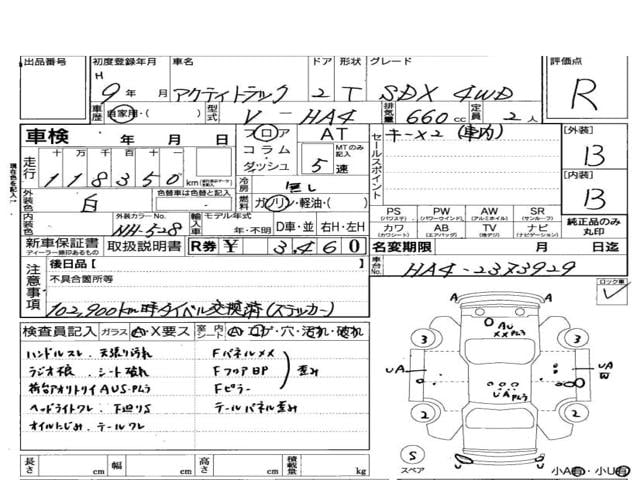 出品番号 初度登録年月 車名 ドア 形状 グレード 評価点
H 9年 月 アクティトラック 2 T SDX 4WD R
車歴 自家用・( 型式 V-HA4 排気量 660cc 定員 2人
車検 年 月 日 フロア AT セールスポイント キーX2 (車内) [外装]
走行 十 万 千 百 十 一 コラム MTのみ記入 B
118350 km ダッシュ 5速 [内装]
現在色を記入→ 冷房 無し B
外装色 白 色替車は色替と記入 燃料 ガソリン・軽油・( )
PS (パワステ) PW (パワーウインド) AW (アルミホイル) SR (サンルーフ) 純正品のみ丸印
内装色 外装カラーNo. NH-528 輸入車 モデル年式 年・不明 D車・並 右H・左H カワ (カワシート) AB (エアバッグ) TV (地デジ) ナビ (ナビゲーション)
新車保証書 ディーラー印あるもの 取扱説明書 R券 ¥ 3,460 名変期限 月 日迄
注意事項 後日品[ ] 車台No. HA4-2373929
不具合箇所等 ロック車
102,900km時タイベル交換済(ステッカー)
検査員記入 ガラス A・X要ス 室内シート A・コゲ・穴・汚れ・破れ
ハンドルスレ. 天張り汚れ Fパネルメメ
ラジオ不良. シート破れ FフロアBP 歪み
荷台アオリトリイAUS・Pムラ Fピラー
ヘッドライトワレ. 下廻りS テールパネル歪み
オイルにじみ. テールワレ
A A
AU
XXPムラ
3 3
UA UA
UAPムラ
2 2
S
スペア 小A有・小U有
長さ cm 幅 cm 高さ cm 積載量 kg